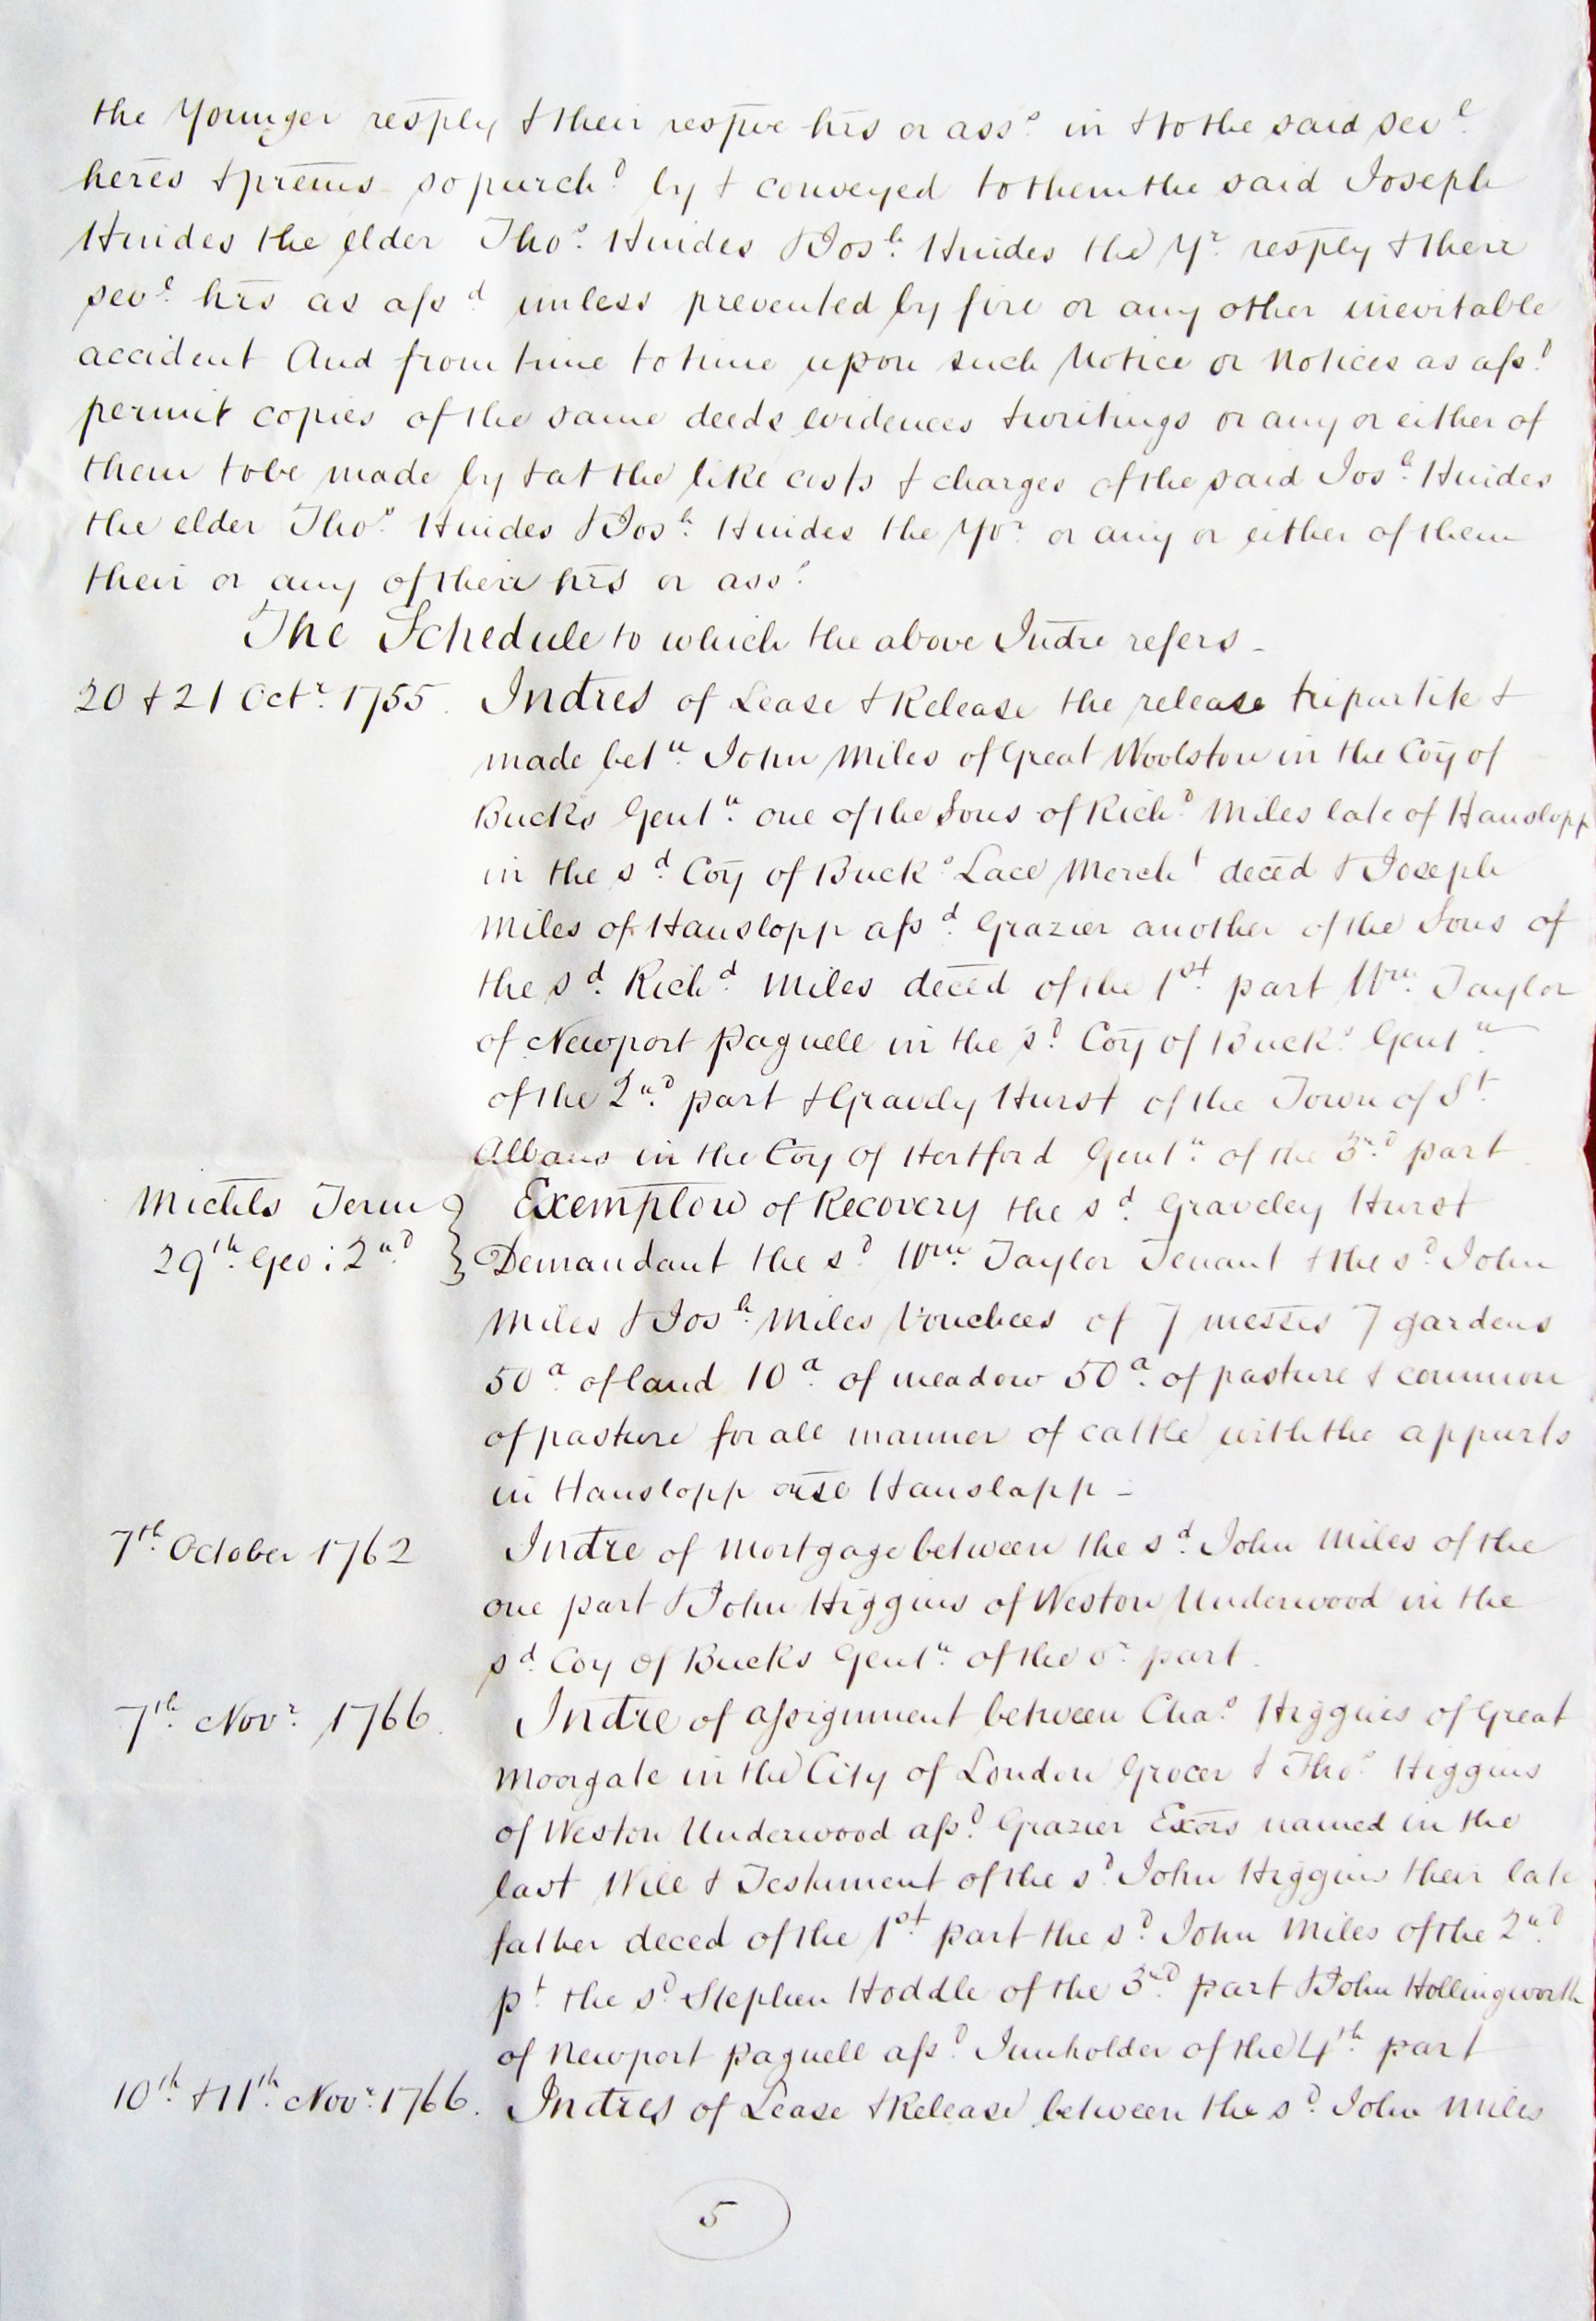 the Younger resply & their respive hrs or ass.s in & to the said sev.l
heres & prems so purch.d by & conveyed to them the said Joseph
Hindes the elder Tho.s Hindes & Jos.h Hindes the Y.r resply & their
sev.l hrs as afs.d unless prevented by fire or any other inevitable
accident And from time to time upon such Notice or Notices as afs.d
permit copies of the same deeds evidences & writings or any or either of
them to be made by & at the like costs & charges of the said Jos.h Hindes
the elder Tho.s Hindes & Jos.h Hindes the Yo.r or any or either of them
their or any of their hrs or ass.s
The Schedule to which the above Indre refers -
20 & 21 Oct.r 1755. Indres of Lease & Release the release tripartite &
made bet.n John Miles of Great Woolston in the Coy of
Bucks Gent.n one of the Sons of Rich.d Miles late of Hanslopp
in the s.d Coy of Buck.s Lace Merch.t deced & Joseph
Miles of Hanslopp afs.d Grazier another of the Sons of
the s.d Rich.d Miles deced of the 1.st part W.m Taylor
of Newport Pagnell in the s.d Coy of Buck.s Gent.n
of the 2.nd part & Gravely Hurst of the Town of S.t
Albans in the Coy of Hertford Gent.n of the 3.rd part
Michls Term } Exemplon of Recovery the s.d Graveley Hurst
29.th Geo: 2.nd } Demandant the s.d W.m Taylor Tenant & the s.d John
Miles & Jos.h Miles Vouchees of 7 messes 7 gardens
50.a of land 10.a of meadow 50.a of pasture & common
of pasture for all manner of cattle with the appurts
in Hanslopp orise Hanslapp -
7.th October 1762 Indre of mortgage between the s.d John Miles of the
one part & John Higgins of Weston Underwood in the
s.d Coy of Bucks Gent.n of the o.r part.
7.th Nov.r 1766. Indre of assignment between Cha.s Higgins of Great
Moorgate in the City of London Grocer & Tho.s Higgins
of Weston Underwood afs.d Grazier Exors named in the
last Will & Testament of the s.d John Higgins their late
father deced of the 1.st part the s.d John Miles of the 2.nd
p.t the s.d Stephen Hoddle of the 3.rd part & John Hollingworth
of Newport Pagnell afs.d Innholder of the 4.th part
10.th & 11.th Nov.r 1766. Indres of Lease & Release between the s.d John Miles
5